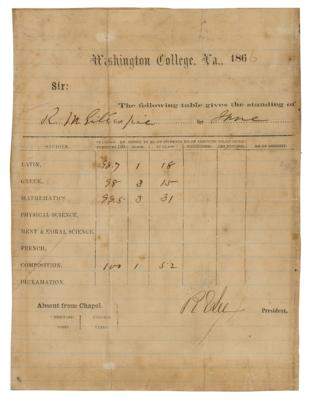 Washington College, Va., 1866
Sir:
The following table gives the standing of
R. M. Gillespie for June
STUDIES.
LATIN, 98.7 1 18
GREEK, 98 3 15
MATHEMATICS 99.5 3 31
PHYSICAL SCIENCE,
MENT & MORAL SCIENCE,
FRENCH,
COMPOSITION, 100 1 52
DECLAMATION.
Absent from Chapel.
R E Lee President.